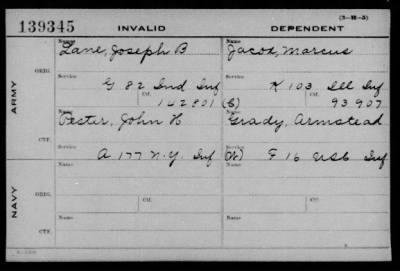 (3-H-5)
139345 INVALID DEPENDENT
Name Name
Lane, Joseph B Jacox, Marcus
ORIG.
Service Service
G 82 Ind Inf K 103 Ill Inf
Ctf. Ctf.
142801 (C) 93907
ARMY
Name Name
Pester, John H Grady, Armstead
CTF.
Service Service
A 177 N.Y. Inf (W) F 16 USC Inf
Name Name
ORIG.
Service Ctf. Service Ctf.
NAVY
Name Name
CTF.